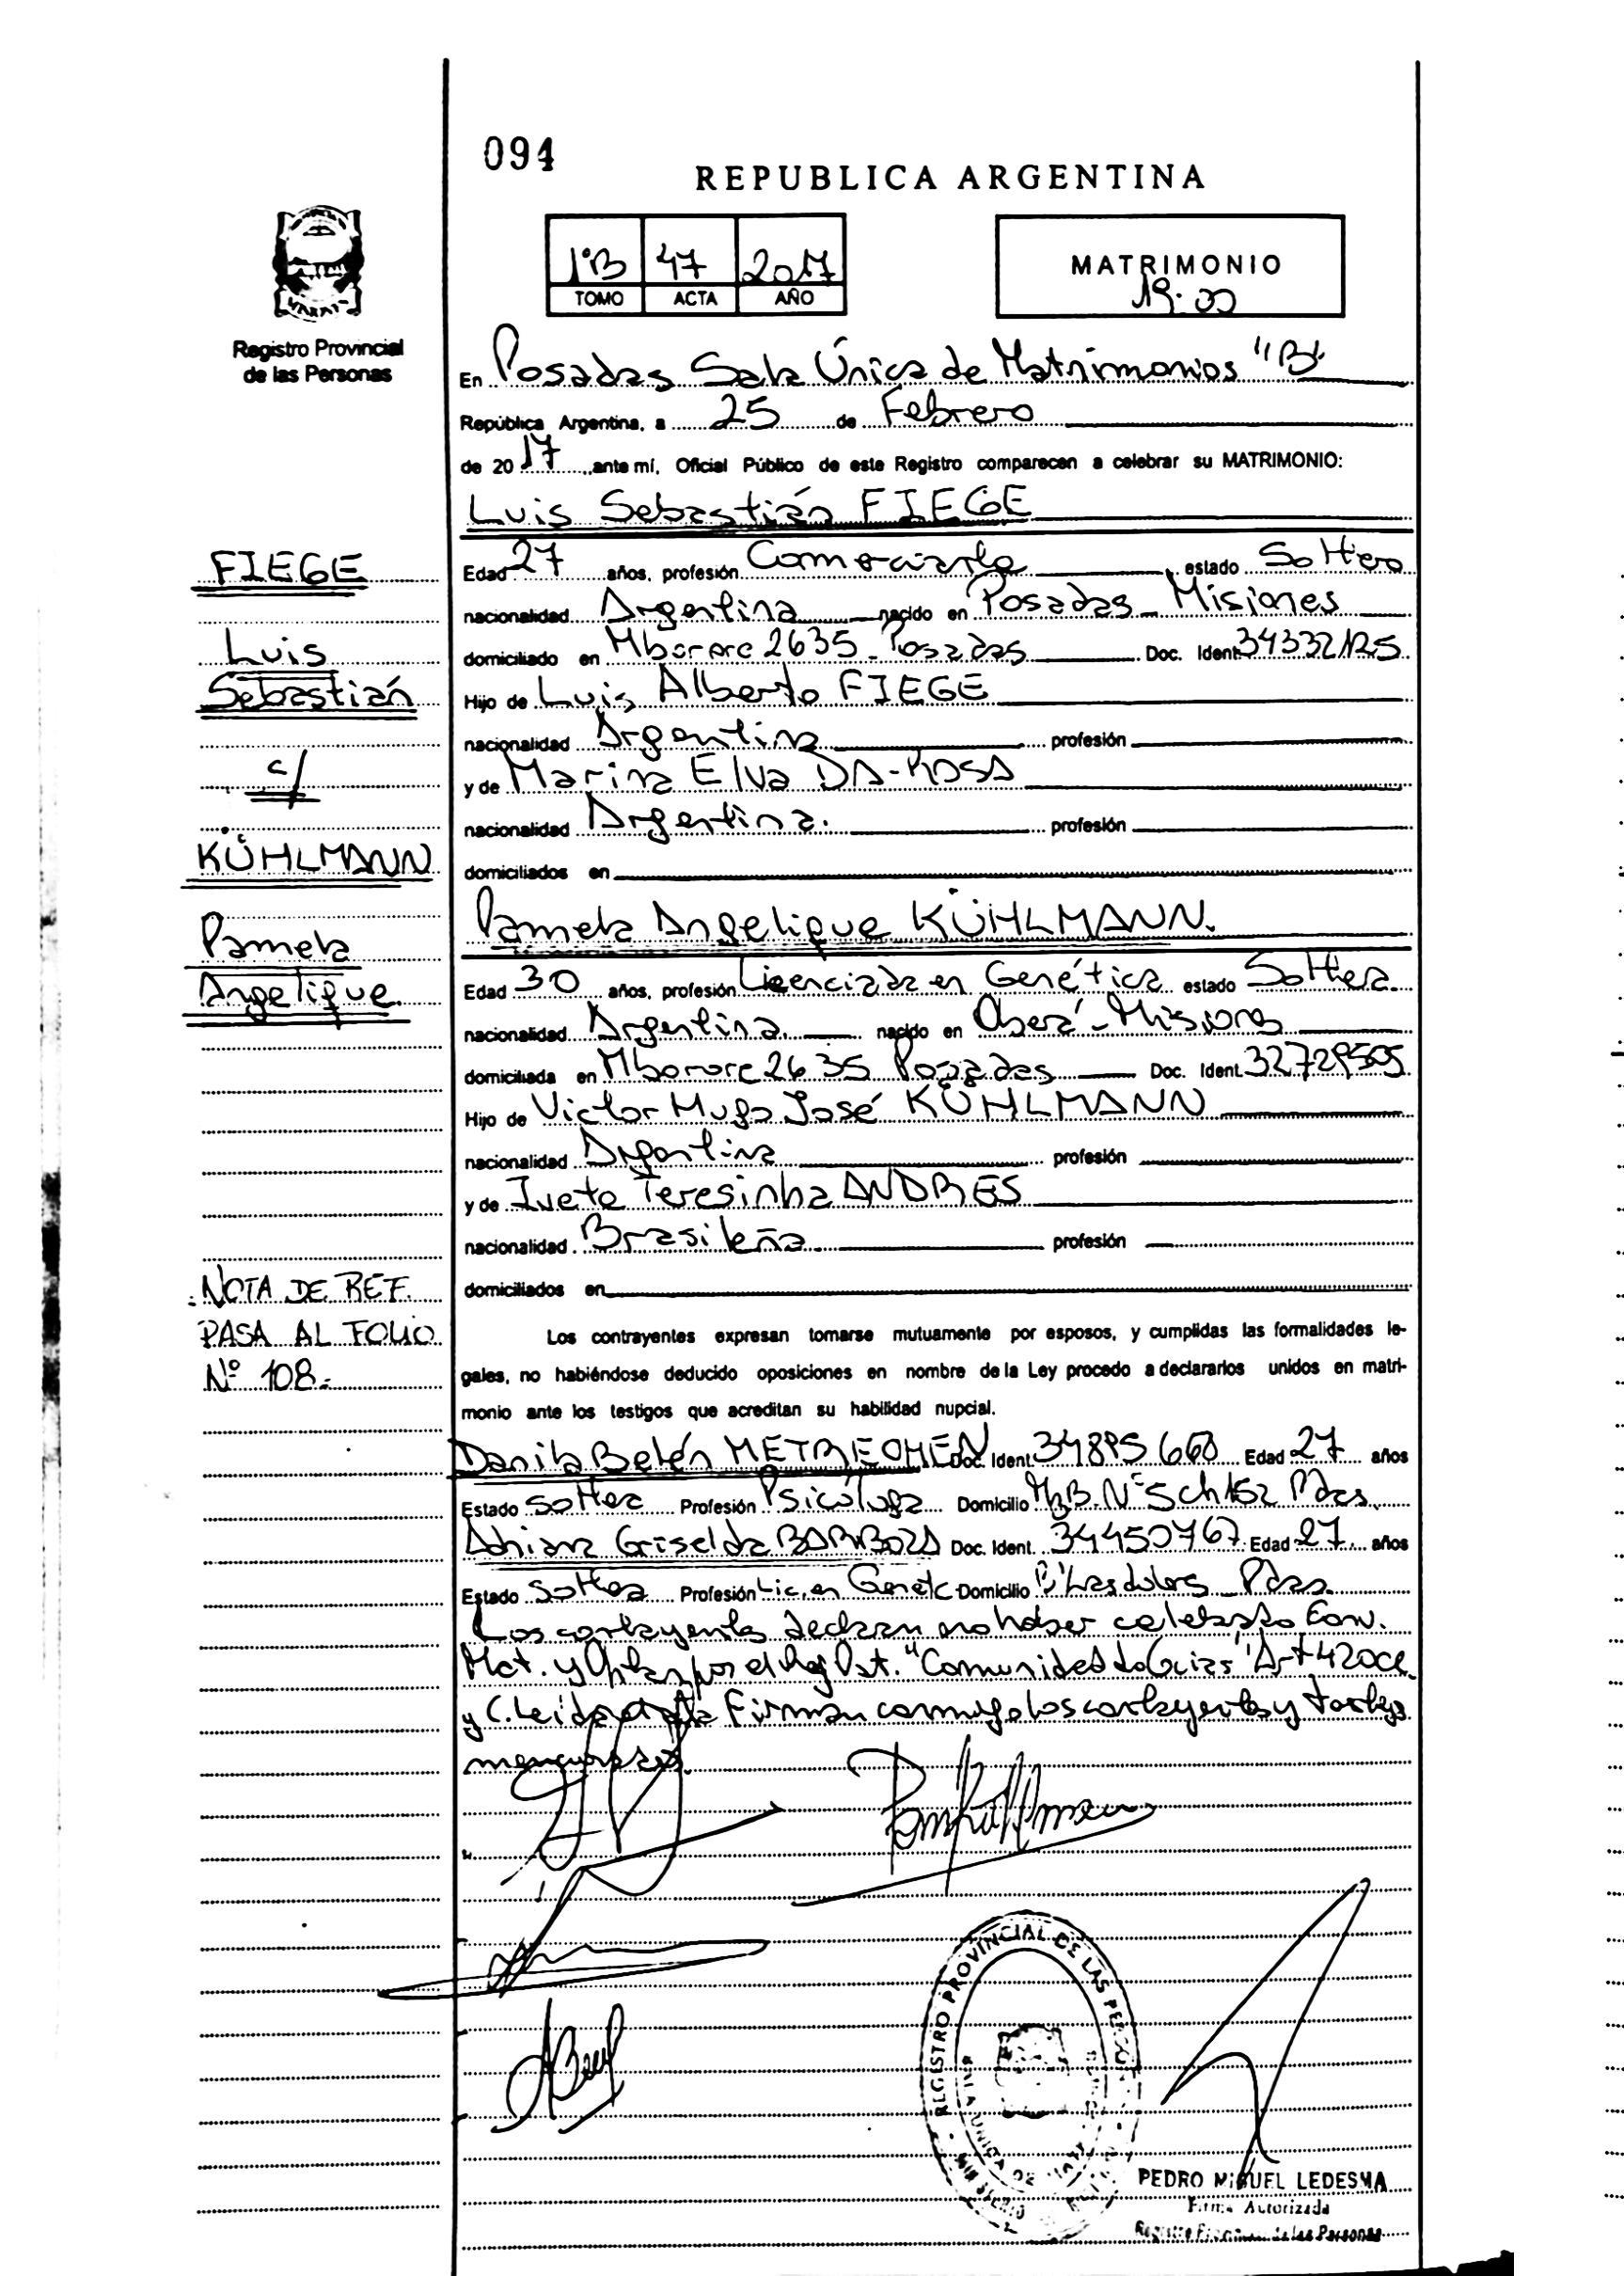 094
REPUBLICA ARGENTINA
1ºB 47 2017
TOMO ACTA AÑO
MATRIMONIO
19:00
Registro Provincial
de las Personas
En Posadas Sala Única de Matrimonios "B"
República Argentina, a 25 de Febrero
de 2017 ante mí, Oficial Público de este Registro comparecen a celebrar su MATRIMONIO:
Luis Sebastián FIEGE
FIEGE
Luis
Sebastián
c/
KÜHLMANN
Pamela
Angelique
Edad 27 años, profesión Comerciante estado Soltero
nacionalidad Argentina nacido en Posadas - Misiones
domiciliado en Mborore 2635 - Posadas Doc. Ident. 34332125
Hijo de Luis Alberto FIEGE
nacionalidad Argentina profesión
y de Marina Elva DA-ROSA
nacionalidad Argentina. profesión
domiciliados en
Pamela Angelique KÜHLMANN.
Edad 30 años, profesión Licenciada en Genética estado Soltera
nacionalidad Argentina nacido en Oberá - Misiones
domiciliada en Mborore 2635 Posadas Doc. Ident. 32729505
Hijo de Victor Hugo José KÜHLMANN
nacionalidad Argentina profesión
y de Ivete Teresinha ANDRES
nacionalidad Brasileña profesión
domiciliados en
NOTA DE REF.
PASA AL FOLIO
Nº 108.-
Los contrayentes expresan tomarse mutuamente por esposos, y cumplidas las formalidades le-
gales, no habiéndose deducido oposiciones en nombre de la Ley procedo a declararlos unidos en matri-
monio ante los testigos que acreditan su habilidad nupcial.
Danila Belén Doc. Ident. 34895660 Edad 27 años
Estado Soltera Profesión Psicóloga Domicilio
Adriana Griselda BARBOZA Doc. Ident. 34450767 Edad 27 años
Estado Soltera Profesión Lic. en Genétc Domicilio Bº Las dolores Pdas
Los contrayentes declaran no haber celebrado Conv.
Mat. y Optan por el Reg Pat. "Comunidad de Gcias" Art 420
y C. Leida el acta Firman conmigo los contrayentes y testigos
mencionados.
REGISTRO PROVINCIAL DE LAS PERSONAS
PEDRO MIGUEL LEDESMA
Firma Autorizada
Registro Provincial de las Personas